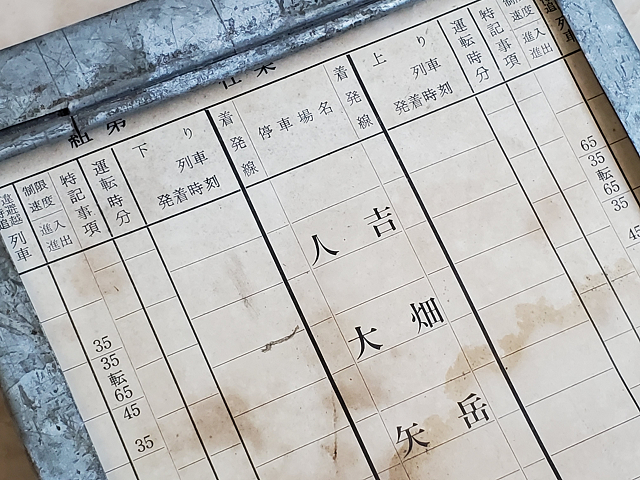 組 第
制限速度
進入進出
列車
特記事項
運転時分
下り列車
発着時刻
着発線
停車場名
着発線
上り列車
発着時刻
運転時分
特記事項
速度
進入進出
列車
人吉
大畑
矢岳
35
35
転
65
45
35
65
35
転
65
35
45